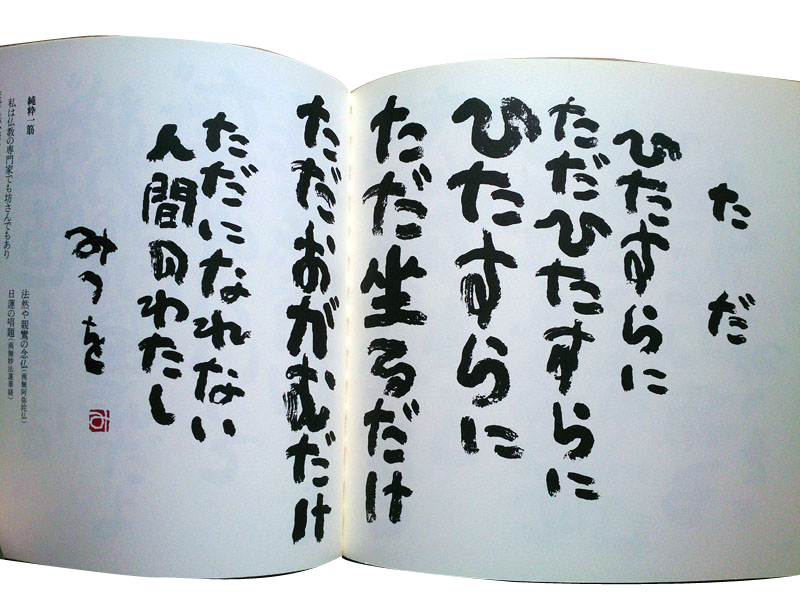 ただ
ひたすらに
ただひたすらに
ひたすらに
ただ生るだけ
ただおがむだけ
ただになれない
人間のわたし
みつを
純粋一筋
私は仏教の専門家でも坊さんでもあり
法然や親鸞の念仏(南無阿弥陀仏)
日蓮の唱題(南無妙法蓮華経)